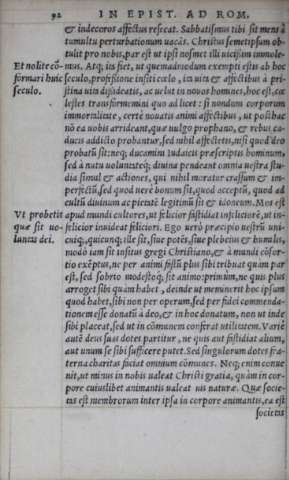 92 IN EPIST. AD ROM.
& indecoros affectus resecat. Sabbatismus tibi sit mens à
tumultu perturbationum uacās. Christus semetipsum ob-
tulit pro nobis, par est ut ipsi nosmet illi uicissim immole-
Et nolite cō- mus. Atq; ita fiet, ut quemadmodum exempti estis ab hoc
formari huic seculo, professione insiti cœlo, ita uita & affectibus à pri-
seculo. stina uita disideatis, ac uelut in nouos homines, hoc est, cœ
lestes transformemini quo ad licet: si nondum corporum
immortalitate, certè nouatis animi affectibus, ut posthac
nō ea uobis arrideant, quæ uulgo prophano, & rebus ca-
ducis addicto probantur, sed nihil affectetis, nisi quod deo
probatū sit: neq; ducamini Iudaicis præscriptis hominum,
sed à natu uoluntateq; diuina pendeant omnia uestra stu-
dia simul & actiones, qui nihil moratur crassum & im-
perfectū, sed quod uerè bonum sit, quod acceptū, quod ad
cultū diuinum ac pietatē legitimū sit & idoneum. Mos est
Vt probetis apud mundi cultores, ut felicior fastidiat infeliciorē, ut in-
quæ sit uo- felicior inuideat feliciori. Ego uerò præcipio uestrū uni-
luntas dei. cuiq;, quicunq; ille sit, siue potēs, siue plebeius & humilis,
modò iam sit insitus gregi Christiano, & à mundi cōsor-
tio exēptus, ne per animi fastū plus sibi tribuat quàm par
est, sed sobrio modestoq; sit animo: primùm, ne quis plus
arroget sibi quàm habet, deinde ut meminerit hoc ipsum
quod habet, sibi non per operum, sed per fidei commenda-
tionem esse donatū à deo, & in hoc donatum, non ut inde
sibi placeat, sed ut in cōmunem conferat utilitatem. Variè
autē deus suas dotes partitur, ne quis aut fastidiat alium,
aut unum se sibi sufficere putet. Sed singulorum dotes fra-
terna charitas faciat omnium cōmunes. Neq; enim conue
nit, ut minus in nobis ualeat Christi gratia, quàm in cor-
pore cuiuslibet animantis ualeat uis naturæ. Quæ socie-
tas est membrorum inter ipsa in corpore animantis, ea est
societas